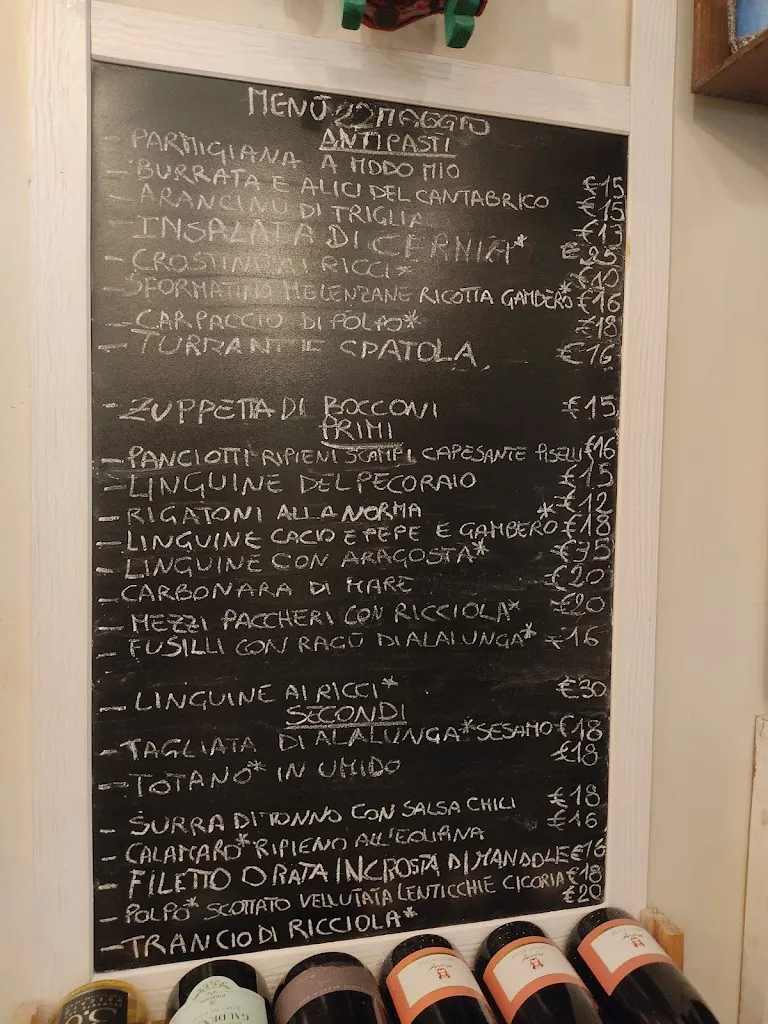 MENÙ 22 MAGGIO
ANTIPASTI
- PARMIGIANA A MODO MIO €15
- BURRATA E ALICI DEL CANTABRICO €15
- ARANCINU DI TRIGLIA €13
- INSALATA DI CERNIA* €25
- CROSTINO AI RICCI* €10
- SFORMATINO MELENZANE RICOTTA GAMBERO* €16
- CARPACCIO DI POLPO* €18
- SPATOLA €16
- ZUPPETTA DI BOCCONI €15
PRIMI
- PANCIOTTI RIPIENI SCAMPI CAPESANTE PISELLI €16
- LINGUINE DEL PECORAIO €15
- RIGATONI ALLA NORMA €12
- LINGUINE CACIO E PEPE E GAMBERO* €18
- LINGUINE CON ARAGOSTA* €35
- CARBONARA DI MARE €20
- MEZZI PACCHERI CON RICCIOLA* €20
- FUSILLI CON RAGÙ DI ALALUNGA* €16
- LINGUINE AI RICCI* €30
SECONDI
- TAGLIATA DI ALALUNGA* SESAMO €18
- TOTANO* IN UMIDO €18
- SURRA DI TONNO CON SALSA CHILI €18
- CALAMARO* RIPIENO ALL'EOLIANA €16
- FILETTO ORATA IN CROSTA DI MANDOLE €16
- POLPO* SCOTTATO VELLUTATA LENTICCHIE CICORIA €18
- TRANCIO DI RICCIOLA* €20